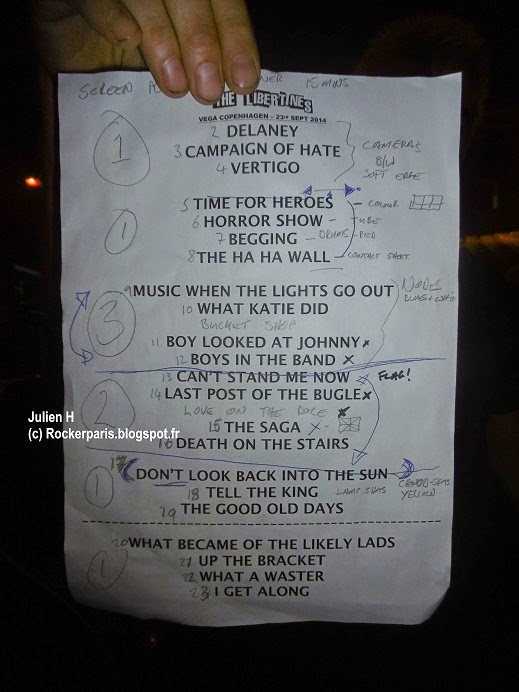 SCREEN 15 MINS
THE LIBERTINES
VEGA COPENHAGEN – 23rd SEPT 2014
2 DELANEY
3 CAMPAIGN OF HATE
4 VERTIGO
1
CAMERAS
B/W
SOFT EDGE
5 TIME FOR HEROES – COLOUR
6 HORROR SHOW –
7 BEGGING – DRUMS – RED
8 THE HA HA WALL – CONTACT SHEET
1
9 MUSIC WHEN THE LIGHTS GO OUT
10 WHAT KATIE DID
BUCKET SHOP
11 BOY LOOKED AT JOHNNY x
12 BOYS IN THE BAND x
3
13 CAN'T STAND ME NOW FLAG!
14 LAST POST OF THE BUGLE x
LOVE ON THE DOLE x
15 THE SAGA x
16 DEATH ON THE STAIRS
2
Julien H
(c) Rockerparis.blogspot.fr
17 DON'T LOOK BACK INTO THE SUN
18 TELL THE KING
29 THE GOOD OLD DAYS
1
YELLOW
20 WHAT BECAME OF THE LIKELY LADS
21 UP THE BRACKET
22 WHAT A WASTER
23 I GET ALONG
1